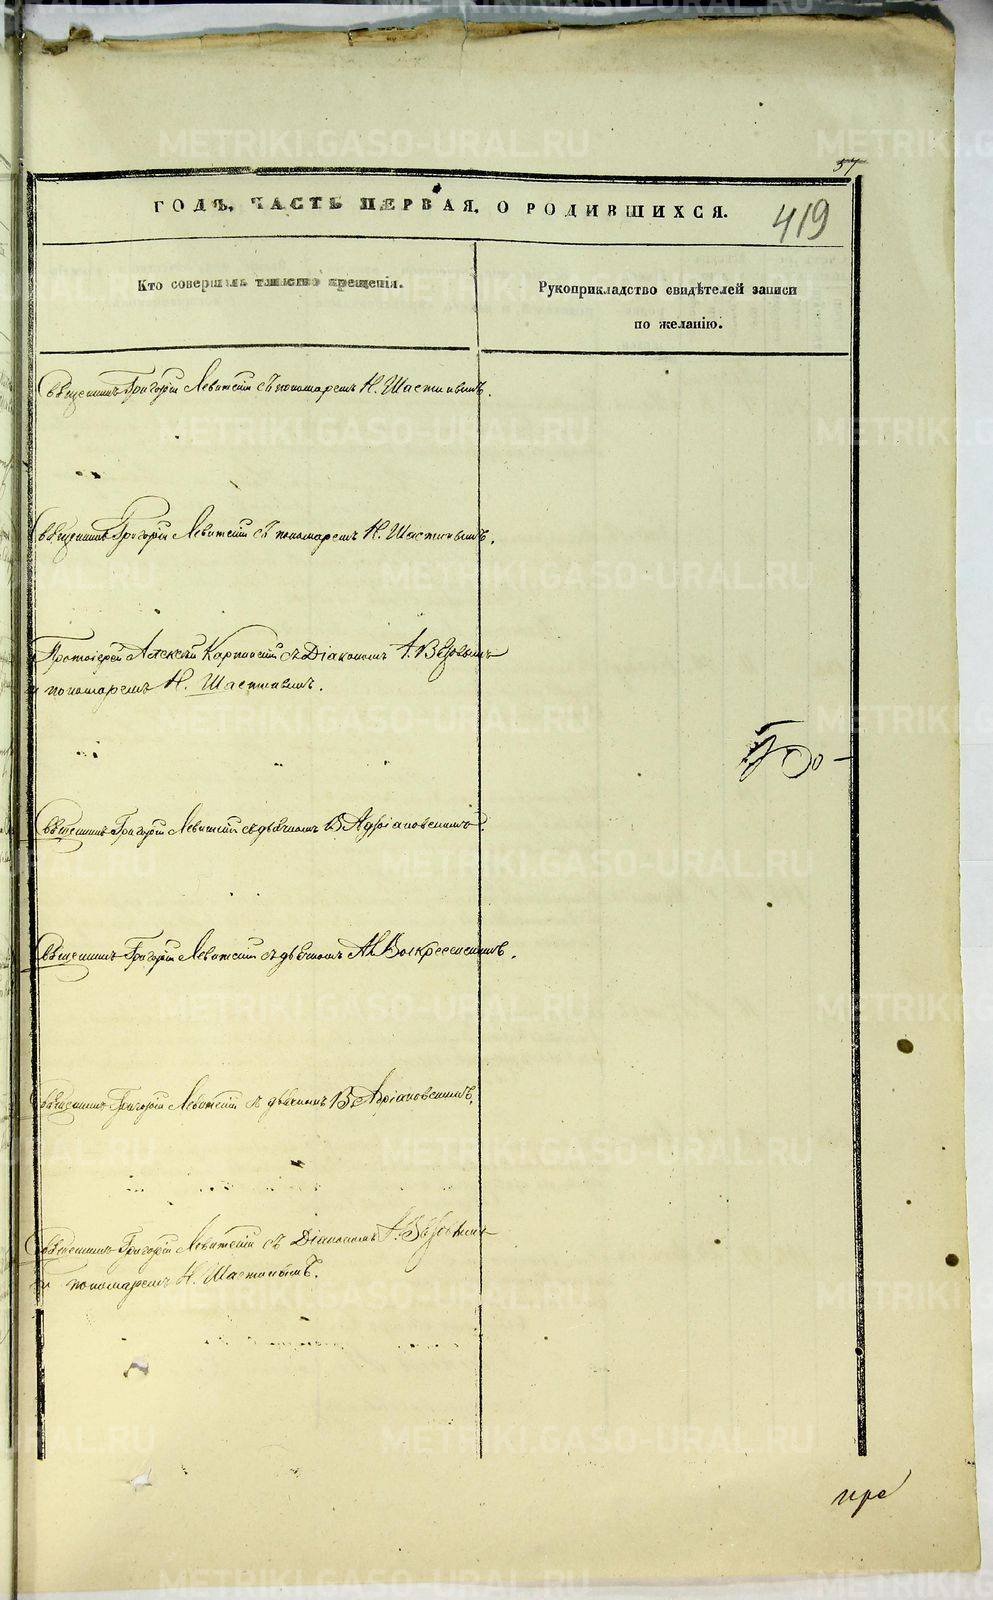 57
ГОДЪ, ЧАСТЬ ПЕРВАЯ, О РОДИВШИХСЯ.
419
Кто совершалъ таинство крещенія.
Рукоприкладство свидѣтелей записи
по желанію.
Священникъ Григорій Левитскій съ пономаремъ Н. Шастинымъ.
Священникъ Григорій Левитскій съ пономаремъ Н. Шастинымъ.
Протоіерей Алексѣй Карпинскій съ Діакономъ
и пономаремъ Н. Шастинымъ.
Священникъ Григорій Левитскій съ дьячкомъ В. Адріановскимъ.
Священникъ Григорій Левитскій съ дьячкомъ Воскресенскимъ.
Священникъ Григорій Левитскій съ дьячкомъ В. Адріановскимъ.
Священникъ Григорій Левитскій съ Діакономъ
и пономаремъ Н. Шастинымъ.
METRIKI.GASO-URAL.RU